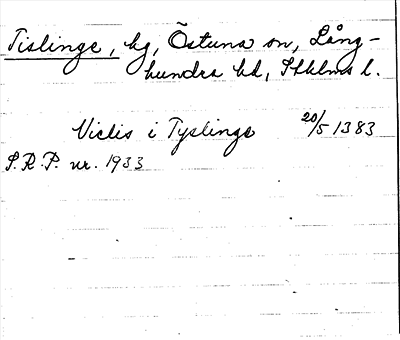 Tislinge, by, Östuna sn, Lång-
hundra hd, Sthlms l.
Viclis i Tyslinge 20/5 1383
S.R.P. nr. 1933